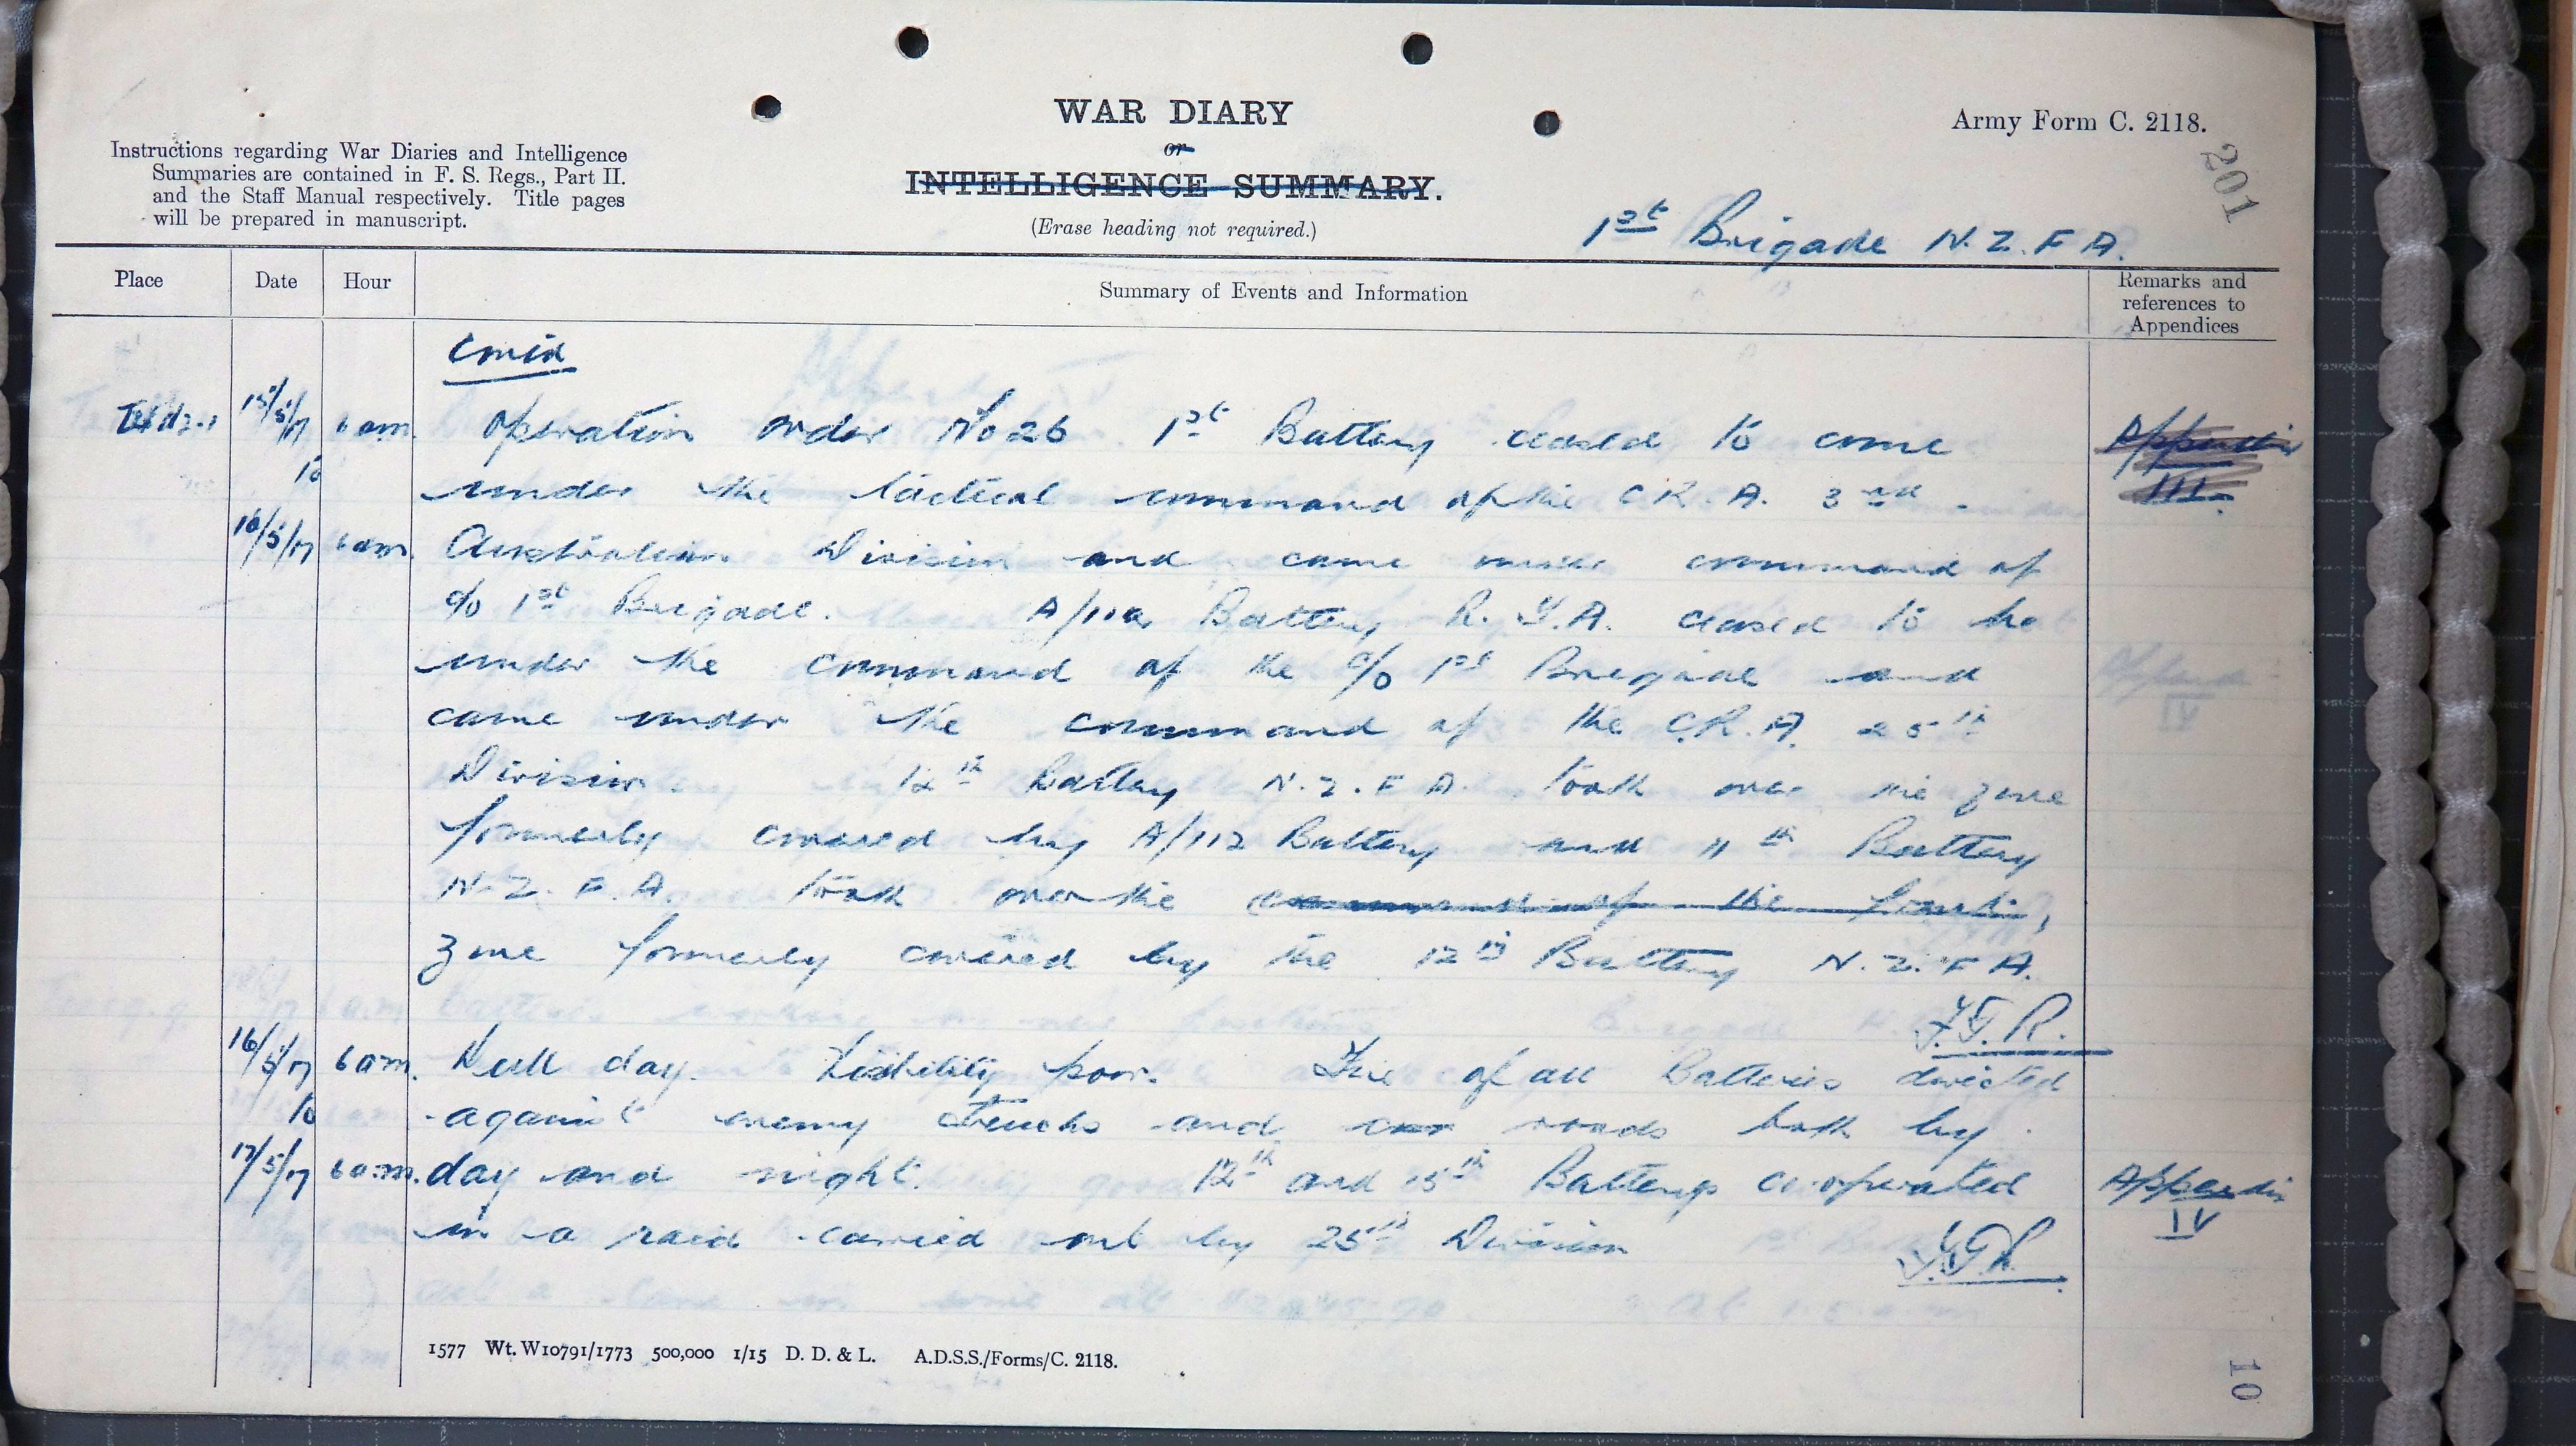 WAR DIARY
or
INTELLIGENCE SUMMARY.
(Erase heading not required.)
Army Form C. 2118.
201
Instructions regarding War Diaries and Intelligence
Summaries are contained in F. S. Regs., Part II.
and the Staff Manual respectively. Title pages
will be prepared in manuscript.
1st Brigade N.Z.F.A.
Place Date Hour Summary of Events and Information Remarks and references to Appendices
Contd
15/5/17 6 am. Operation Order No 26 1st Battery ceased to come Appendix
to under the tactical command of the C.R.A. 3rd III
16/5/17 6 am. Australian Division and came under command of
o/o 1st Brigade. A/112 Battery R.F.A. ceased to be
under the command of the o/o 1st Brigade and
came under the command of the C.R.A. 25th
Division. 12th Battery N.Z.F.A. took over the zone
formerly covered by A/112 Battery and 11th Battery
N.Z.F.A. took over the command of the
zone formerly covered by the 12th Battery N.Z.F.A.
F.G.R.
16/5/17 6 am. Dull day. Visibility poor. Fire of all Batteries directed
to against enemy trenches and roads both by
17/5/17 6 am. day and night. 12th and 15th Batterys co-operated Appendix
in a raid carried out by 25th Division IV
F.G.R.
1577 Wt. W10791/1773 500,000 1/15 D. D. & L. A.D.S.S./Forms/C. 2118.
10